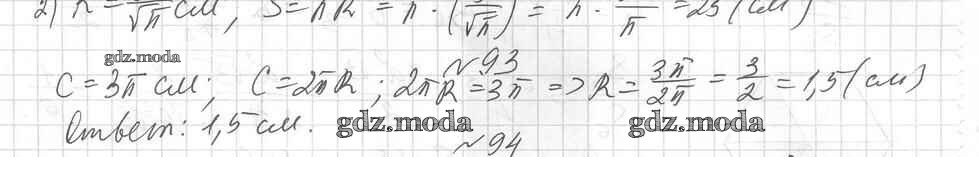 2) R = /√π см, S = πR = π · (/√π) = π · /π = 25 (см)
gdz.moda
№93
C = 3π см; C = 2πR; 2πR = 3π => R = 3π/2π = 3/2 = 1,5 (см)
Ответ: 1,5 см.
gdz.moda gdz.moda
№94